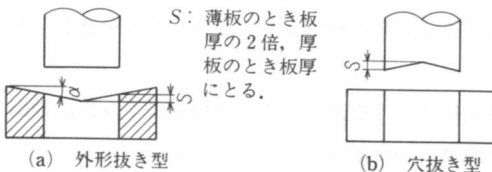 S：薄板のとき板
厚の2倍，厚
板のとき板厚
にとる．
α
S
S
(a) 外形抜き型
(b) 穴抜き型